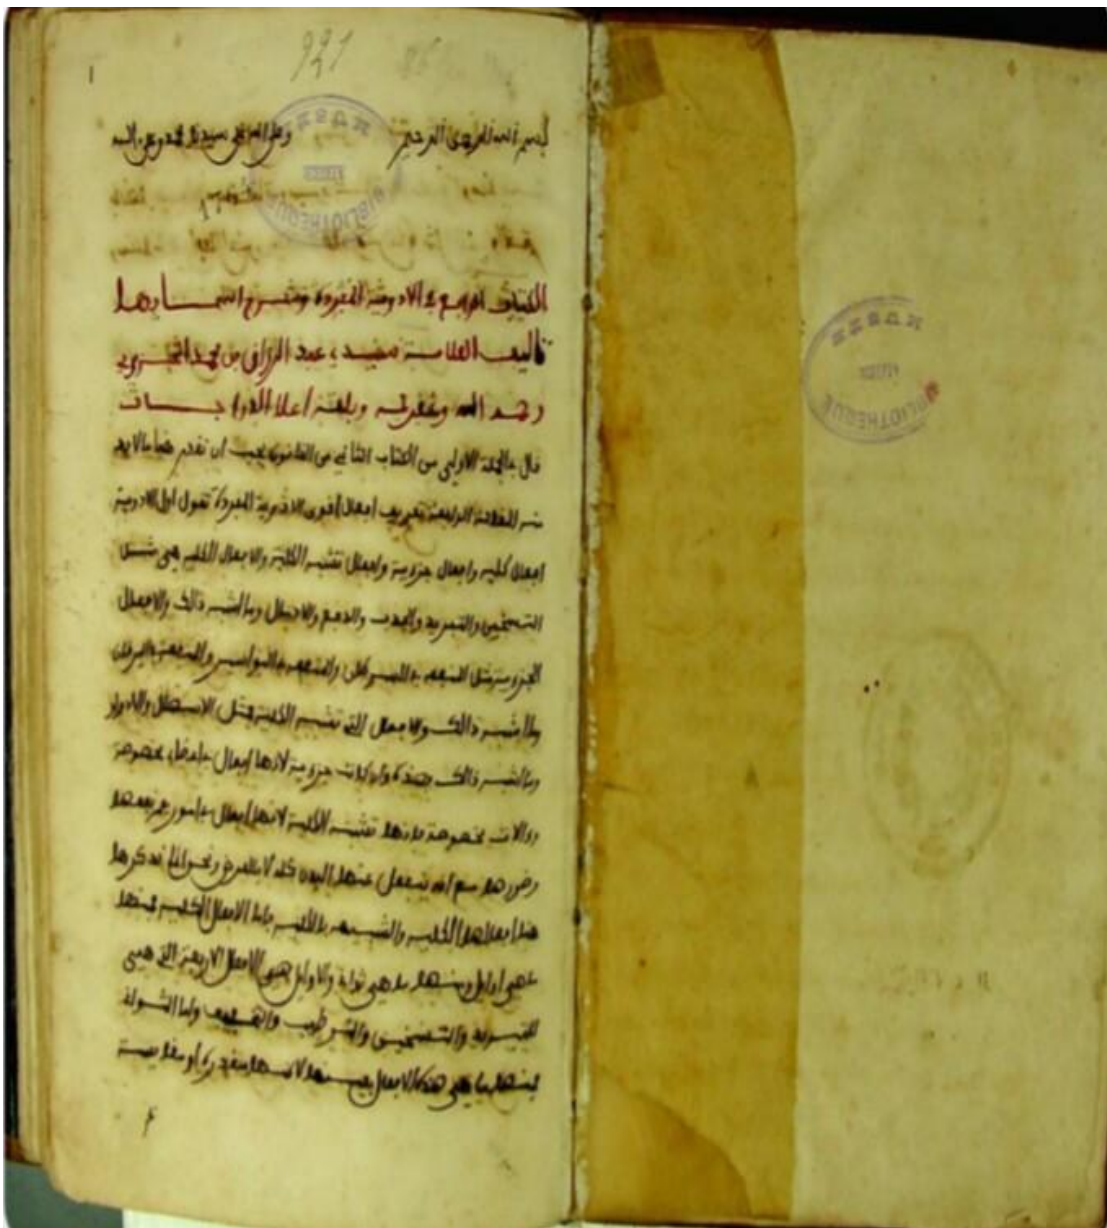 921
1
بسم الله الرحمن الرحيم وصلى الله على سيدنا محمد وعلى اله
الكتاب الرابع في الادوية المفردة وشرح اسمايها
تاليف العلامة سيدي عبد الرزاق بن محمد الجزيري
رحمه الله وغفر له وبلغه اعلا الدرجات
قال في الجملة الاولى من الكتاب الثاني من القانون يجب ان
المقالة الرابعة تعريف افعال قوى الادوية المفردة نقول ان للادوية
افعال كلية وافعال جزوية وافعال تشبه الكلية والافعال الكلية هي مثل
التسخين والتبريد والجذب والدفع والادمال وما اشبه ذالك والافعال
الجزوية مثل المنفعة في السرطان والمنفعة في البواسير والمنفعة في اليرقان
وما اشبه ذالك والافعال التي تشبه الكلية مثل الاسهال والادرار
وما اشبه ذالك فهذه وان كانت جزوية لانها افعال في اعضاء مخصوصة
والات مخصوصة فانها تشبه الكلية لانها افعال في امور يعم نفعها
وضررها مع انه ينفعل عنها البدن كله لا بالعرض ونحن انما نذكر هنا
هنا افعالها الكلية والشبيهة بالكلية فاما الافعال الكلية فمنها
ما هي اوايل ومنها ما هي ثواني والاوايل هي الافعال الاربعة التي هي
التبريد والتسخين والترطيب والتجفيف واما الثواني
فمنها ما هي هذه الافعال بعينها لاكنها مقدرة او مقايسة
BIBLIOTHEQUE
BIBLIOTHEQUE